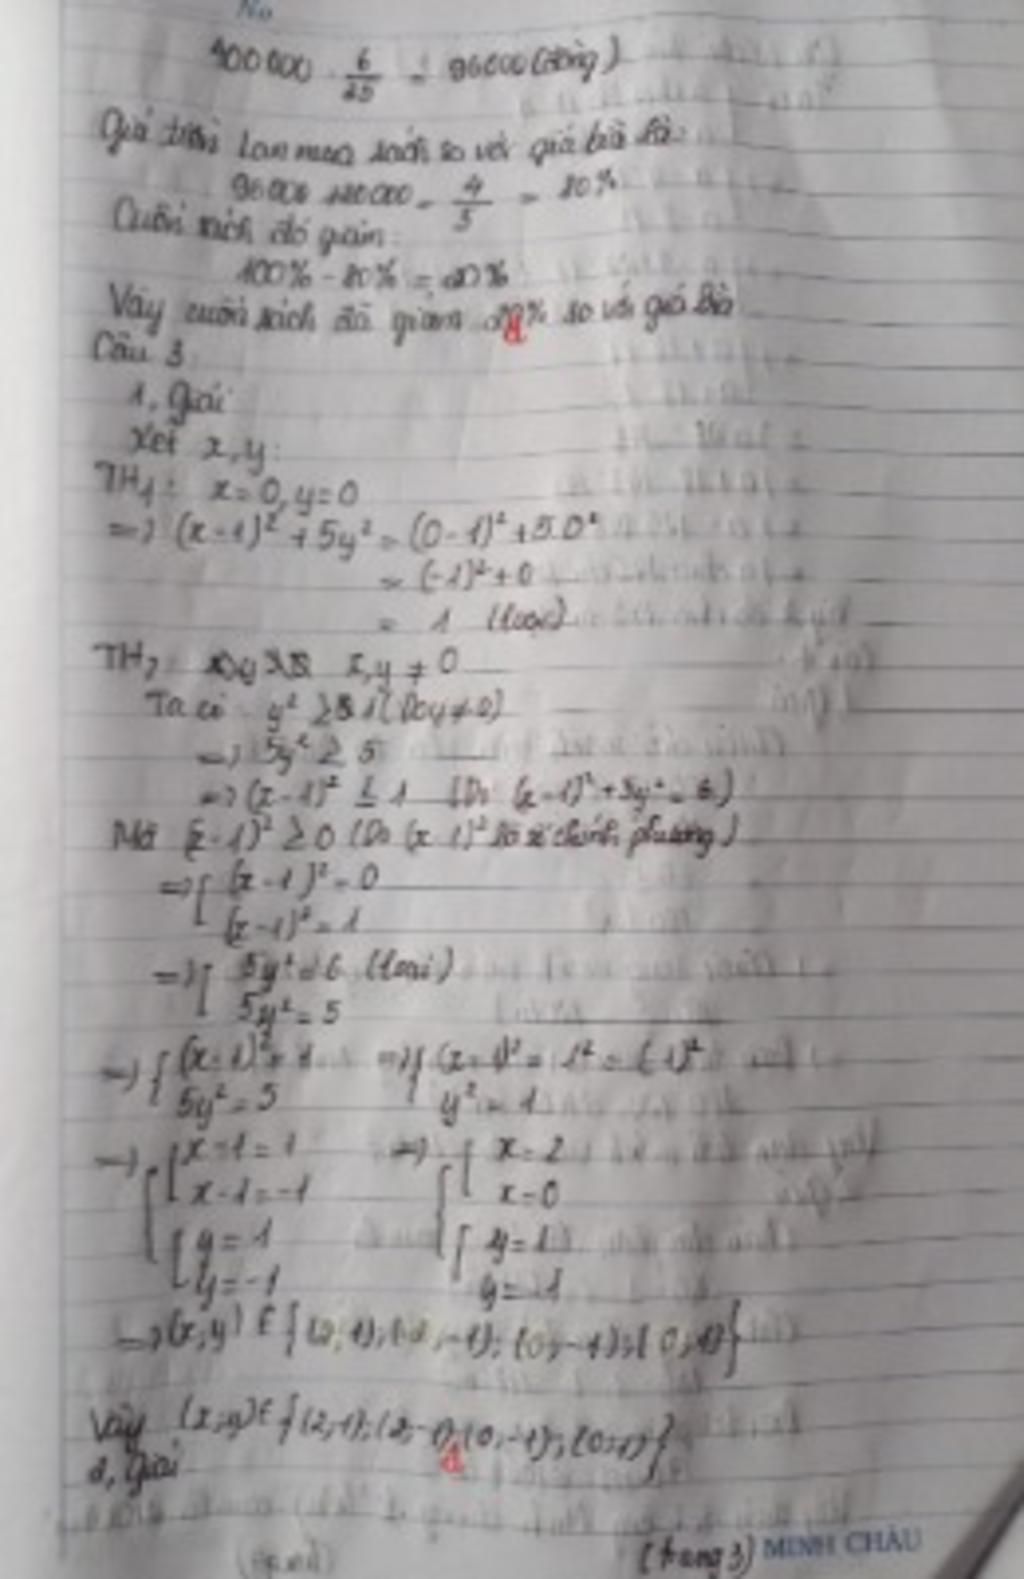 No
400 000 . 6/25 = 96000 (đồng)
Giá tiền Lan mua sách so với giá bìa là:
96000 : 120 000 = 4/5 = 80%
Cuốn sách đó giảm:
100% - 80% = 20%
Vậy cuốn sách đã giảm 20% so với giá bìa
Câu 3
1, Giải
Xét x, y:
TH1: x=0, y=0
=> (x-1)² + 5y² = (0-1)² + 5.0²
= (-1)² + 0
= 1 (loại)
TH2: x, y ≠ 0
Ta có y² ≥ 1 (Do y ≠ 0)
=> 5y² ≥ 5
=> (x-1)² ≤ 1 (Do (x-1)² + 5y² = 6)
Mà (x-1)² ≥ 0 (Do (x-1)² là số chính phương)
=> [ (x-1)² = 0
(x-1)² = 1
=> [ 5y² = 6 (loại)
5y² = 5
=> { (x-1)² = 1 => { (x-1)² = 1² = (-1)²
5y² = 5 y² = 1
=> [ x-1=1 => [ x=2
x-1=-1 x=0
[ y=1 [ y=1
y=-1 y=-1
=> (x,y) ∈ {(2,1);(2,-1);(0,-1);(0,1)}
Vậy (x,y) ∈ {(2,1);(2,-1);(0,-1);(0,1)}
2, Giải
(trang 3) MINH CHÂU